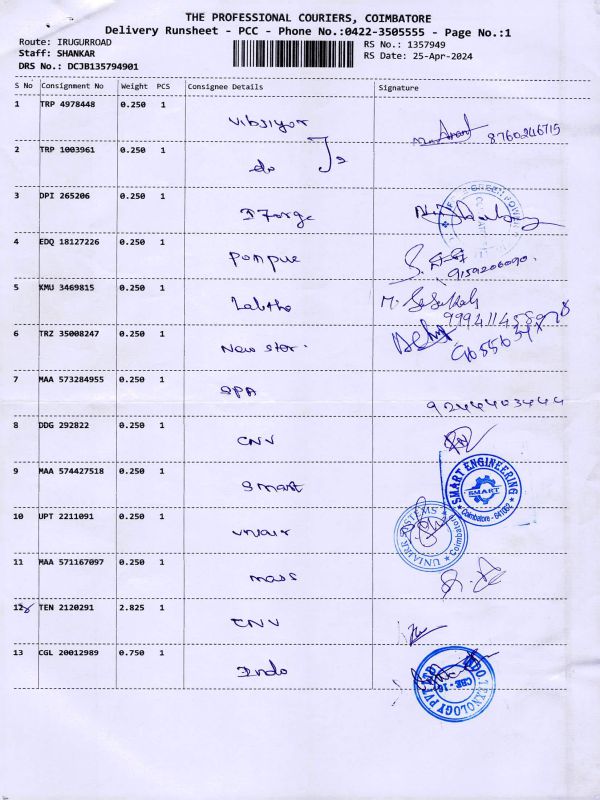 THE PROFESSIONAL COURIERS, COIMBATORE
Delivery Runsheet - PCC - Phone No.:0422-3505555 - Page No.:1
Route: IRUGURROAD
RS No.: 1357949
Staff: SHANKAR
RS Date: 25-Apr-2024
DRS No.: DCJB135794901
S No Consignment No Weight PCS Consignee Details Signature
1 TRP 4978448 0.250 1 8760246715
2 TRP 1003961 0.250 1 do
3 DPI 265206 0.250 1 Forge
GREEN POWER
4 EDQ 18127226 0.250 1
9159206090.
5 KMU 3469815 0.250 1
6 TRZ 35008247 0.250 1 New stor.
7 MAA 573284955 0.250 1 SPA 9244403444
8 DDG 292822 0.250 1 CNV
9 MAA 574427518 0.250 1 Smart
SMART ENGINEERING
SMART
Coimbatore - 641062
10 UPT 2211091 0.250 1
UNIAIRR SYSTEMS
Coimbatore
11 MAA 571167097 0.250 1 mass
12 TEN 2120291 2.825 1 CNV
13 CGL 20012989 0.750 1 Indo
CBE - 16